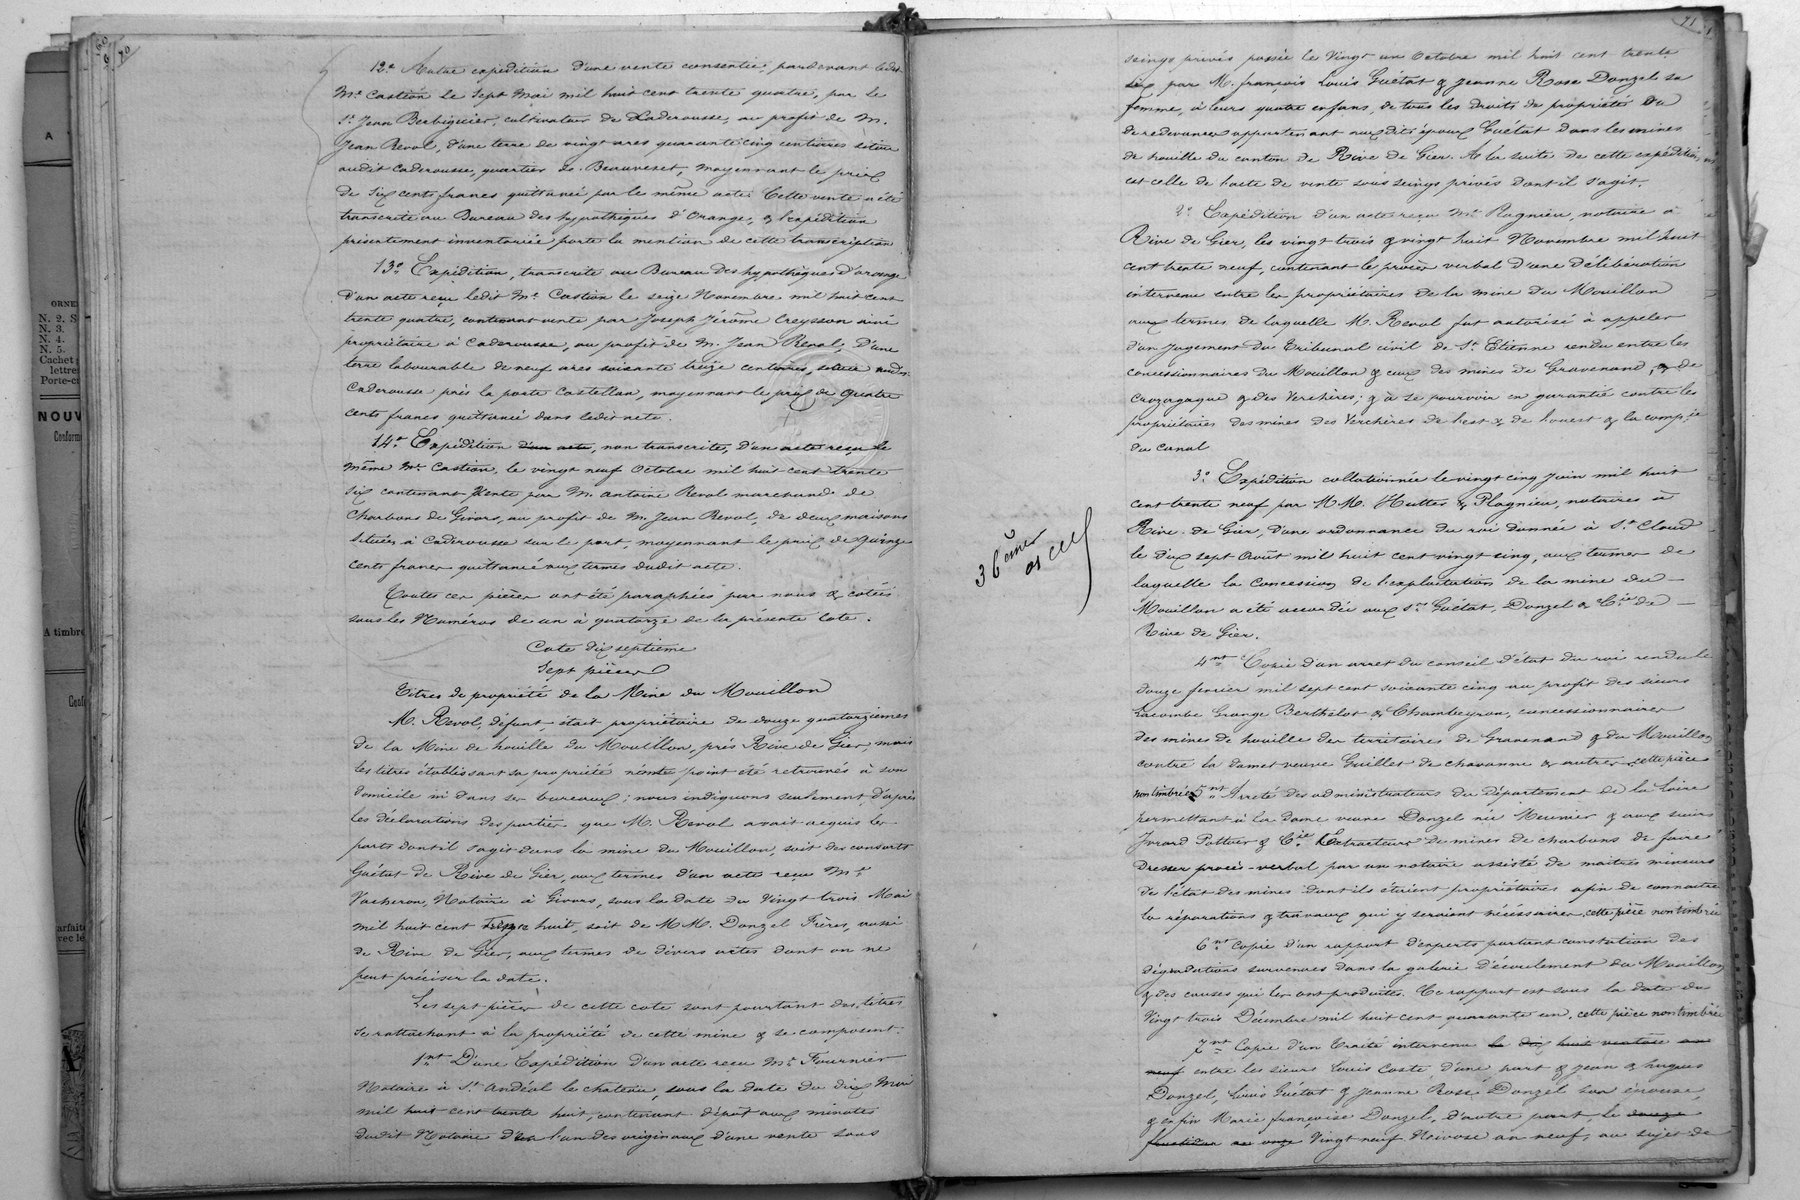 70
12º Autre expédition d'une vente consentie, pardevant ledit
Me Castion le sept mai mil huit cent trente quatre, par le
Sr Jean Berbiguier, cultivateur de Caderousse, au profit de M.
Jean Revol, d'une terre de vingt ares quarante cinq centiares située
audit Caderousse, quartier de Beauvezet, moyennant le prix
de six cents francs quittancé par le même acte. Cette vente a été
transcrite au Bureau des hypothèques d'Orange, & l'expédition
présentement inventoriée porte la mention de cette transcription
13º Expédition, transcrite au Bureau des hypothèques d'orange
d'un acte reçu ledit Me Castion le seize Novembre mil huit cent
trente quatre, contenant vente par Joseph Jérôme Creysson ainé
propriétaire à Caderousse, au profit de M. Jean Revol, d'une
terre labourable de neuf ares soixante treize centiares, située audit
Caderousse près la porte Castellan, moyennant le prix de quatre
cents francs quittancé dans ledit acte.
14º Expédition d'un acte, non transcrite, d'un acte reçu le
même Me Castion, le vingt neuf Octobre mil huit cent trente
six contenant vente par M. antoine Revol marchand de
Charbons de Givors, au profit de M. Jean Revol, de deux maisons
situées à Caderousse sur le port, moyennant le prix de quinze
cents francs quittancé aux termes dudit acte.
Toutes ces pièces ont été paraphées par nous & cotées
sous les Numéros de un à quatorze de la présente cote.
Cote dix septième
Sept pièces
Titres de propriété de la Mine du Mouillon
M. Revol, défunt, était propriétaire de douze quatorzièmes
de la Mine de houille du Mouillon, près Rive de Gier, mais
les titres établissant sa propriété n'ont point été retrouvés à son
domicile ni dans ses bureaux; nous indiquons seulement, d'après
les déclarations des parties que M. Revol avait acquis les
parts dont il s'agit dans la mine du Mouillon, soit des consorts
Guétat de Rive de Gier, aux termes d'un acte reçu Me
Vacheron, Notaire à Givors, sous la date du Vingt trois Mai
mil huit cent trente huit, soit de MM. Donzel Frères, aussi
de Rive de Gier, aux termes de divers actes dont on ne
peut préciser la date.
Les sept pièces de cette cote sont pourtant des titres
se rattachant à la propriété de cette mine & se composent.
1nt D'une Expédition d'un acte reçu Me Fournier
Notaire à St Andéol le chateau, sous la date du dix Mai
mil huit cent trente huit, contenant dépôt aux minutes
dudit Notaire d'un l'un des originaux d'une vente sous
71
seings privés passée le Vingt un Octobre mil huit cent trente
six par M. françois Louis Guétat & Jeanne Rose Donzel sa
femme, à leurs quatre enfans, de tous les droits de propriétés ou
de redevances appartenant auxdits époux Guétat dans les mines
de houille du canton de Rive de Gier. A la suite de cette expédition
est celle de l'acte de vente sous seings privés dont il s'agit.
2º Expédition d'un acte reçu Me Plagnieu, notaire à
Rive de Gier, les vingt trois & vingt huit Novembre mil huit
cent trente neuf, contenant le procès verbal d'une délibération
intervenue entre les propriétaires de la mine du Mouillon
aux termes de laquelle M. Revol fut autorisé à appeler
d'un Jugement du Tribunal civil de St Etienne rendu entre les
concessionnaires du Mouillon & ceux des mines de Gravenand, & de
Crozagaque & des Verchères; & à se pourvoir en garantie contre les
propriétaires des mines des Verchères de l'est & de l'ouest & la compie
du canal
3º Expédition collationnée le vingt cinq Juin mil huit
cent trente neuf par MM. Hutter & Plagnieu, notaires à
Rive de Gier, d'une ordonnance du roi donnée à St Cloud
le dix sept Août mil huit cent vingt cinq, aux termes de
laquelle la Concession de l'exploitation de la mine du
Mouillon a été accordée aux srs Guétat, Donzel & Cie de
Rive de Gier.
4nt Copie d'un arret du conseil d'état du roi rendu le
douze fevrier mil sept cent soixante cinq au profit des sieurs
Lacombe Grange Berthelot & Chambeyron, concessionnaires
des mines de houille des territoires de Gravenand & du Mouillon
contre la dame veuve Guillet de chavanne & autres cette pièce
non timbrée 5nt Arreté des administrateurs du Département de la Loire
permettant à la dame veuve Donzel née Meunier & aux sieurs
& Cie Extracteurs de mines de charbons de faire
dresser procès-verbal par un notaire assisté de maîtres mineurs
de l'état des mines dont ils étaient propriétaires afin de connaitre
les réparations & travaux qui y seraient nécessaires, cette pièce non timbrée
6nt Copie d'un rapport d'experts portant constation des
dégradations survenues dans la galerie d'écoulement du Mouillon
& des causes qui les ont produites. Ce rapport est sous la date du
Vingt trois Décembre mil huit cent quarante un. cette pièce non timbrée
7nt Copie d'un Traité intervenu le dix huit ventose an
neuf entre les sieurs Louis Coste, d'une part & Jean & hugues
Donzel, Louis Guétat & Jeanne Rose Donzel son épouse,
& enfin Marie françoise Donzel, d'autre part, le douze
an onze Vingt neuf Nivose an neuf, au sujet de